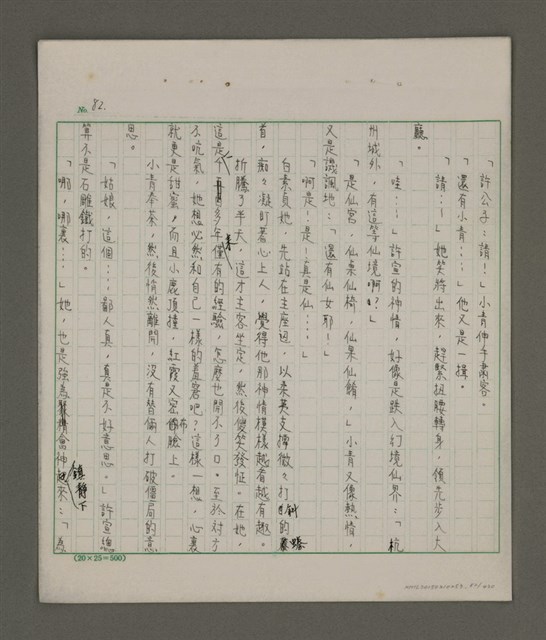 No. 82.
「許公子：請！」小青伸手肅客。
「還有小青…」他又是一揖。
「請…！」她笑將出來，趕緊扭腰轉身，僅先步入大
廳。
「哇…！」許宣的神情，好像是跌入幻境仙界：「杭
州城外，有這等仙境啊？」
「是仙宮，仙桌仙椅，仙果仙餚，」小青又像熱情，
又是譏諷地：「還有仙女耶！」
「啊是！是！真是仙…」
白素貞她，先站在主座迎，以柔荑支撐微々打斜的嬌
者，痴々凝盯著心上人，覺得他那神情模樣越看越有趣。
折騰了半天，這才主客坐定，然後傻笑發怔。在她，
這是千百多年來僅有的經驗，怎麼也開不了口。至於對方
不吭氣，她想必然和自己一樣的羞窘吧？這樣一想，心裏
就更是甜蜜，而且小鹿頂撞，紅霞又密佈臉上。
小青奉茶，然後悄然離開，沒有替倆人打破僵局的意
思。
「姑娘，這個…鄙人真，真是不好意思。」許宣總
算不是石雕鐵打的。
「哪，哪裏…」她，也是強為鎮靜下來：「為
(20×25=500)